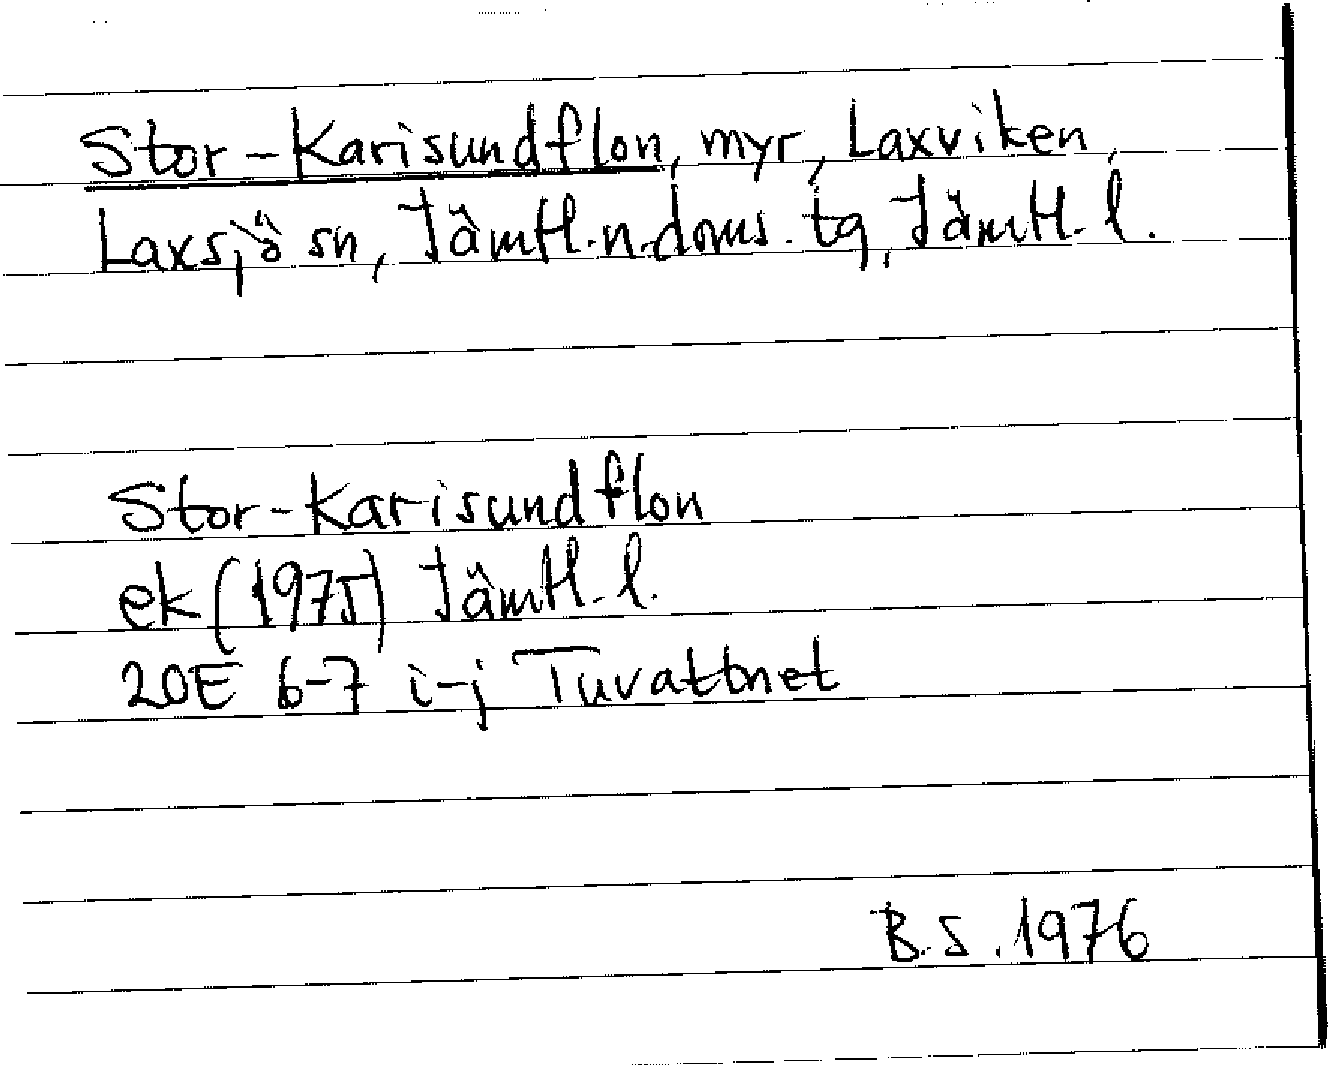 Stor-Karisundflon, myr, Laxviken,
Laxsjö sn, Jämtl.n.doms.tg, Jämtl.l.
Stor-Karisundflon
ek (1975) Jämtl.l.
20E 6-7 i-j Tuvattnet
B.S. 1976